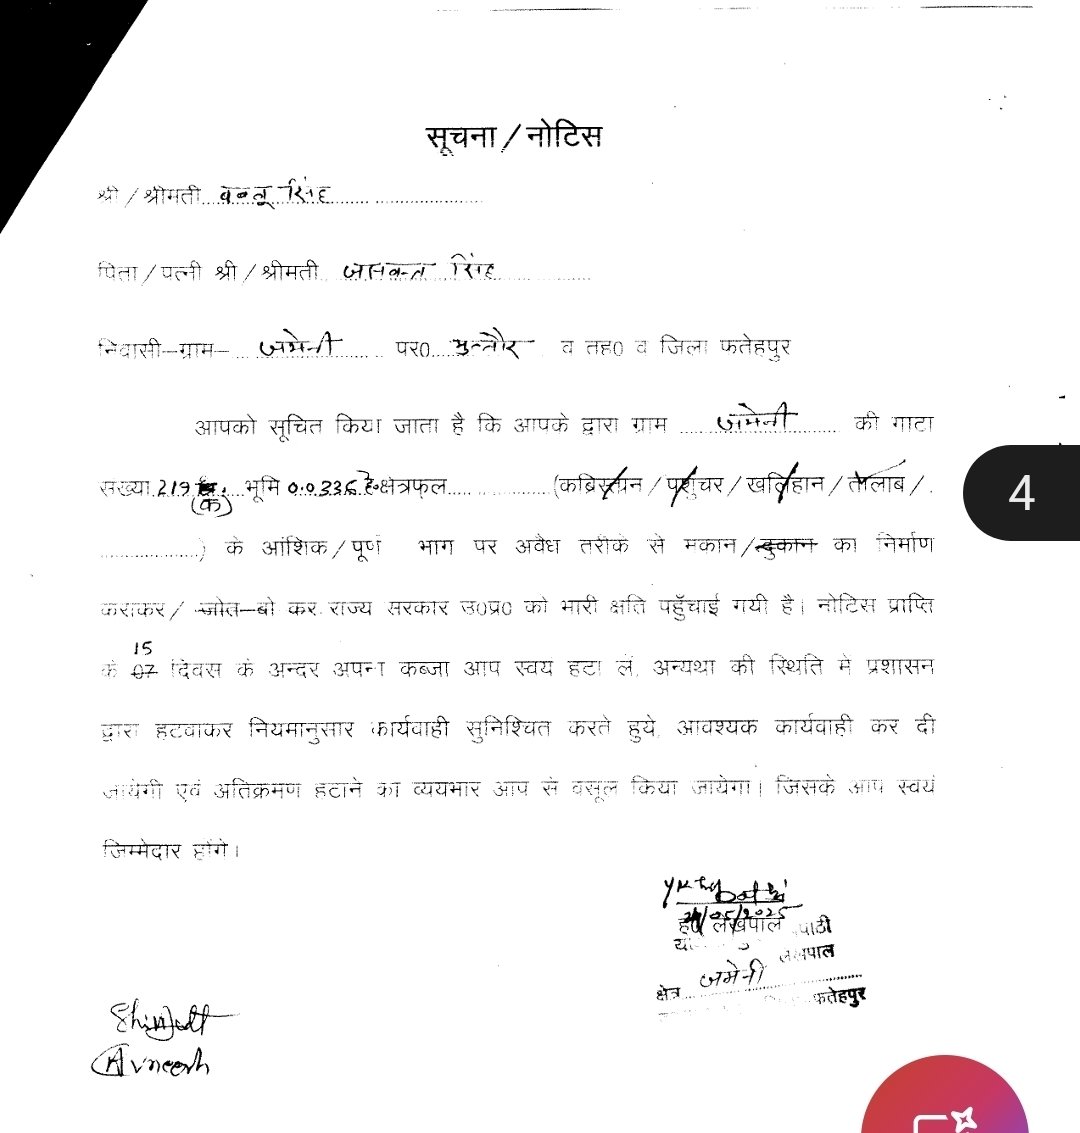 सूचना / नोटिस
श्री / श्रीमती बन्तू सिंह
पिता / पत्नी श्री / श्रीमती जसवन्त सिंह
निवासी–ग्राम– जमेनी पर0 मुत्तौर व तह0 व जिला फतेहपुर
आपको सूचित किया जाता है कि आपके द्वारा ग्राम जमेनी की गाटा
सख्या 219 (क) भूमि 0.0336 हे0 क्षेत्रफल (कब्रिस्तान / पशुचर / खलिहान / तालाब /
) के आंशिक / पूर्ण भाग पर अवैध तरीके से मकान / दुकान का निर्माण
कराकर / जोत–बो कर राज्य सरकार उ0प्र0 को भारी क्षति पहुँचाई गयी है। नोटिस प्राप्ति
15
के 07 दिवस के अन्दर अपना कब्जा आप स्वयं हटा लें, अन्यथा की स्थिति मे प्रशासन
द्वारा हटवाकर नियमानुसार कार्यवाही सुनिश्चित करते हुये, आवश्यक कार्यवाही कर दी
जायेगी एवं अतिक्रमण हटाने का व्ययभार आप से वसूल किया जायेगा। जिसके आप स्वयं
जिम्मेदार होंगे।
/05/2025
ह0 लेखपाल
लेखपाल
क्षेत्र जमेनी
फतेहपुर
Avneesh
4